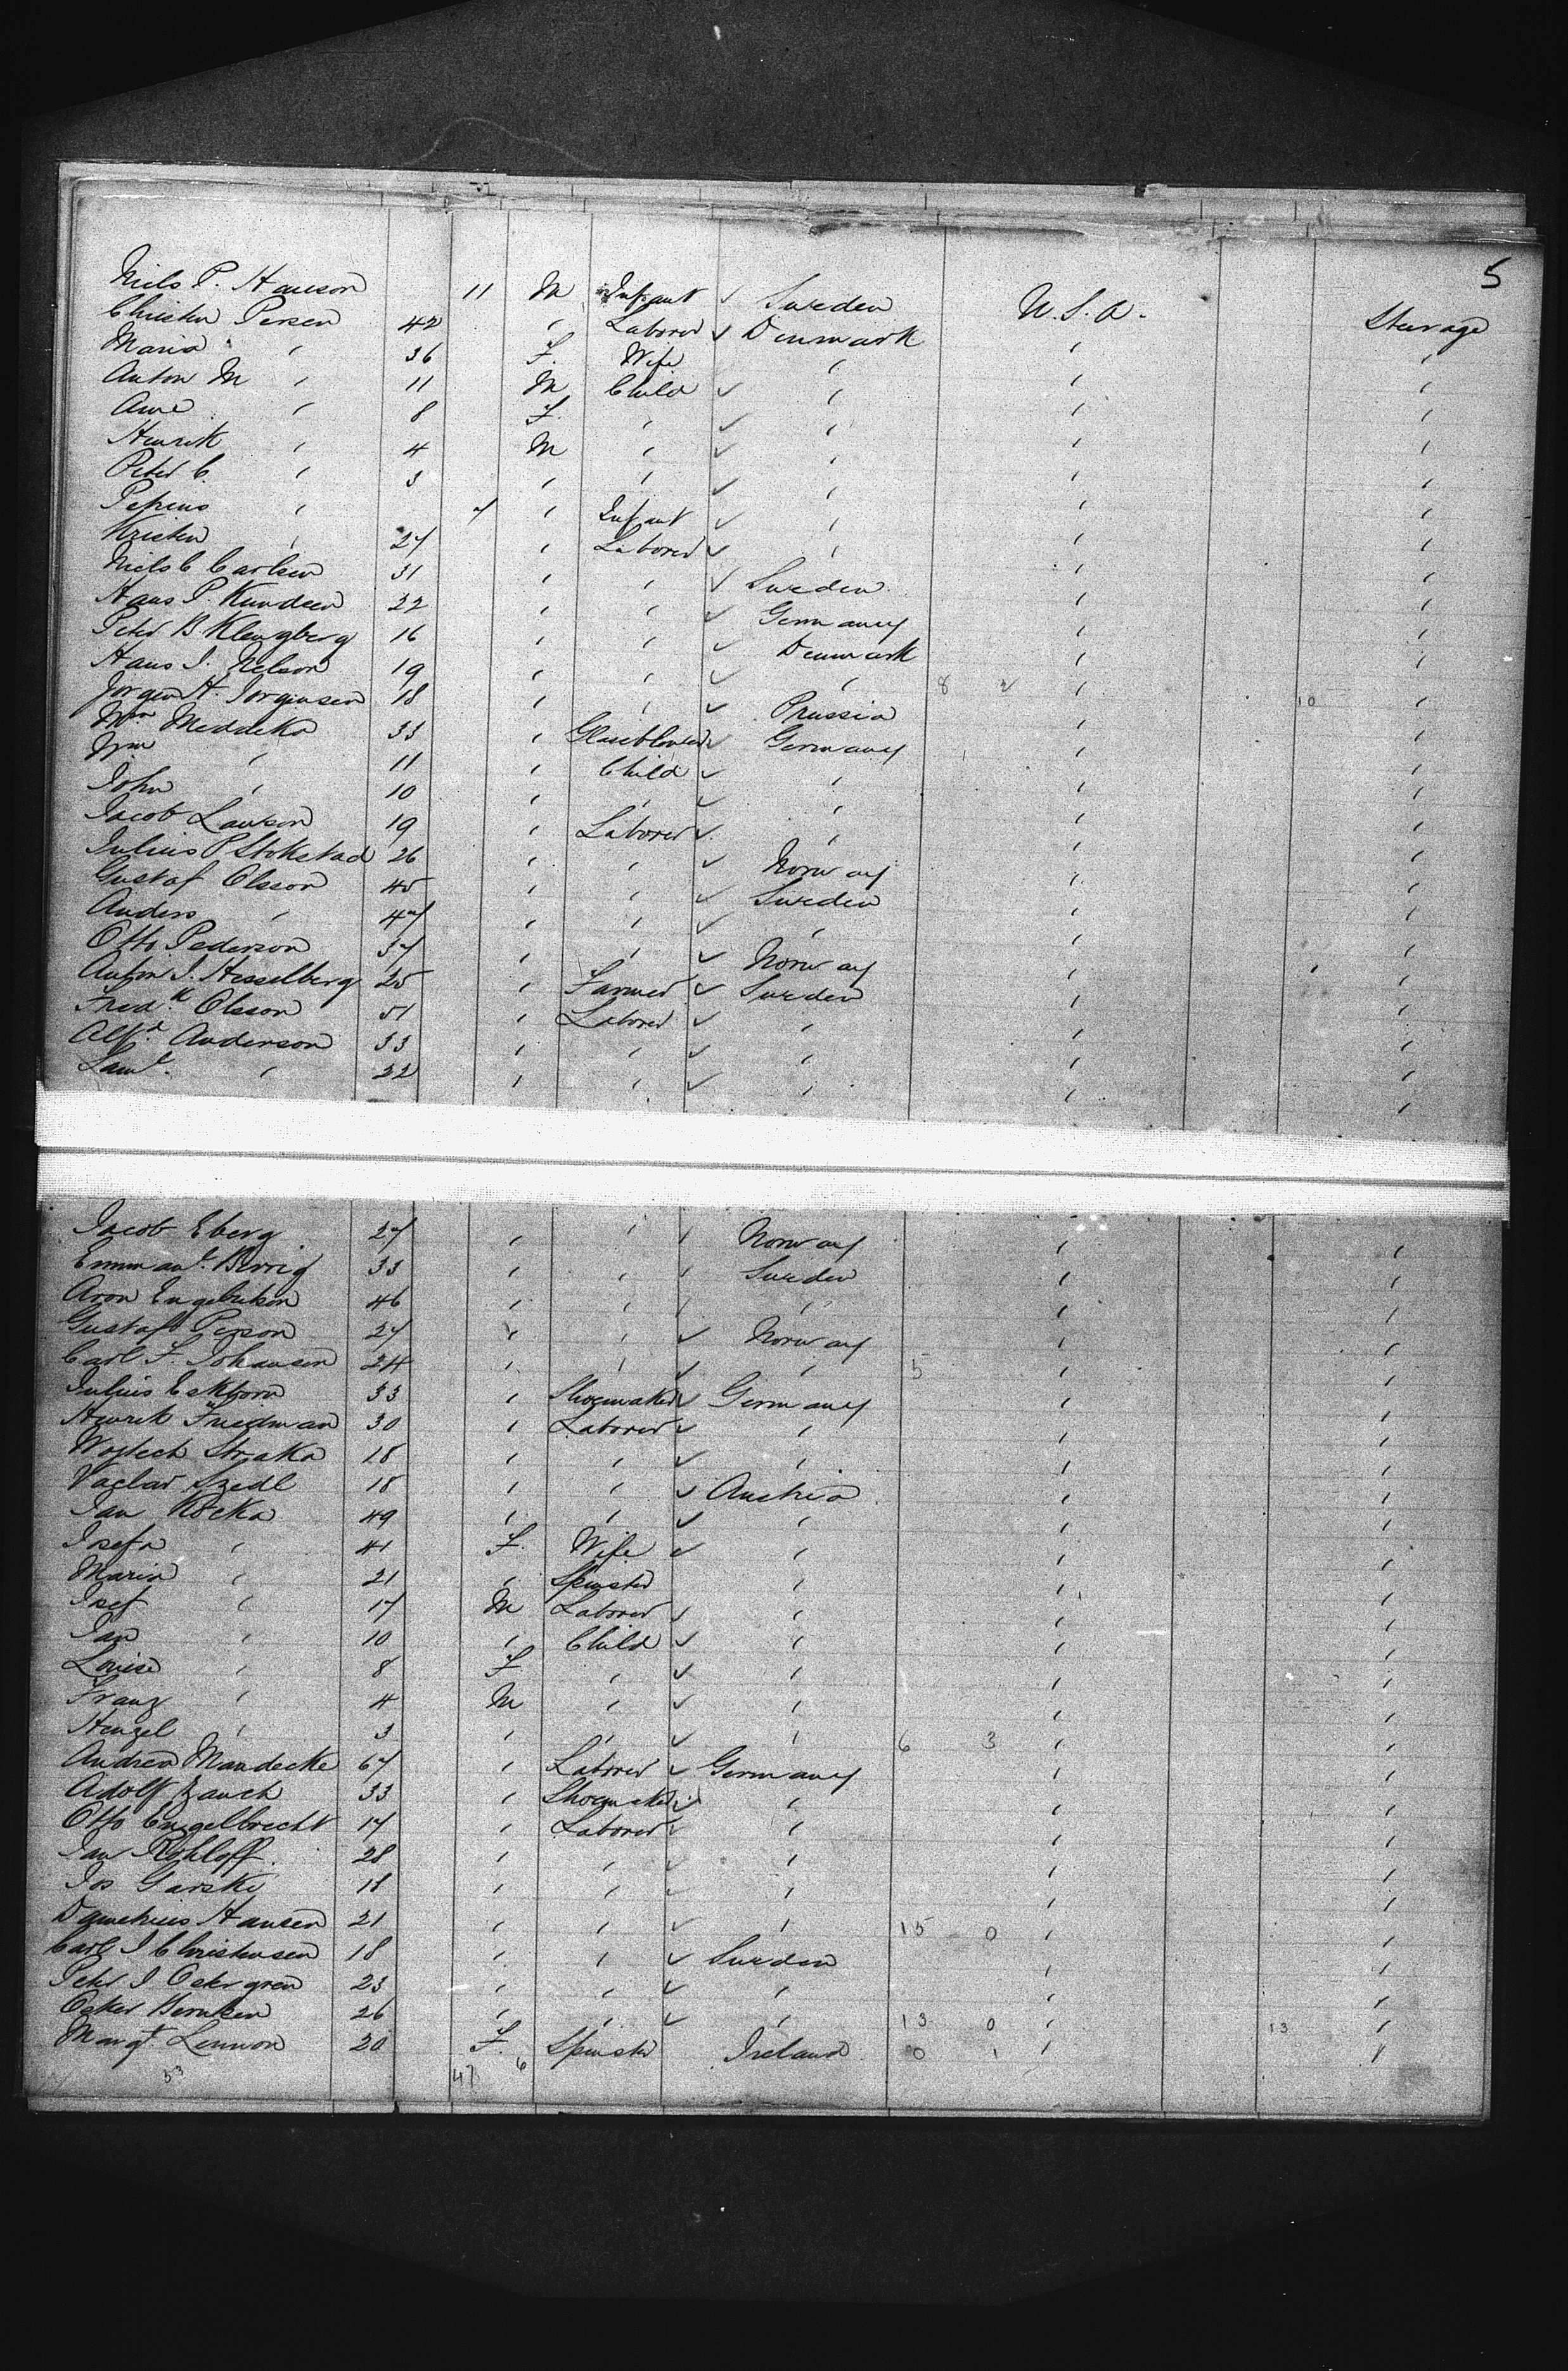 5
Niels P. Hanson 11 M Infant ✓ Sweden U.S.A. Steerage
Christen Persen 42 " Laborer ✓ Denmark " "
Maria " 36 F. Wife " " "
Anton M " 11 M Child ✓ " " "
Ane " 8 F. " ✓ " " "
Henrik " 4 M " ✓ " " "
Peter C. " 3 " " ✓ " " "
" 7 " Infant ✓ " " "
Kristen " 27 " Laborer ✓ " " "
Niels C Carlsen 31 " " ✓ Sweden " "
Hans P. Kundsen 22 " " ✓ Germany " "
Peter B. Klengberg 16 " " ✓ Denmark " "
Hans J. Nelson 19 " " ✓ " 8 2 " "
Jorgen H. Jorginsen 18 " " ✓ Prussia " 10 "
Wm Meddeka 33 " Glassblower ✓ Germany " "
Wm " 11 " Child ✓ " " "
John " 10 " " ✓ " " "
Jacob Lauson 19 " Laborer ✓ " " "
Julius P Stokstad 26 " " ✓ Norway " "
Gustaf Olsson 45 " " ✓ Sweden " "
Anders " 47 " " ✓ " " "
Otto Pederson 37 " " ✓ Norway " "
Anton J. Hesselberg 25 " Farmer ✓ Sweden " "
Fred.k Olsson 51 " Laborer ✓ " " "
Alf.d Anderson 33 " " ✓ " " "
Saml. " 22 " " ✓ " " "
Jacob Eberg 27 " " " Norway " "
Emmanl. Berrig 33 " " " Sweden " "
Aron Engebretson 46 " " " " " "
Gustaf Person 27 " " ✓ Norway " "
Carl F. Johansen 24 " " ✓ " 5 " "
Julius Eskborn 33 " Shoemaker ✓ Germany " "
Henrik Friedman 30 " Laborer ✓ " " "
Wojtech Straka 18 " " ✓ " " "
Vaclav Szedl 18 " " ✓ Austria " "
Jan Kocka 49 " " ✓ " " "
Josefa " 41 F. Wife ✓ " " "
Maria " 21 " Spinster " " "
Josef " 17 M Laborer ✓ " " "
Jan " 10 " Child ✓ " " "
Louise " 8 F " ✓ " " "
Franz " 4 M " ✓ " " "
Henzel " 3 " " ✓ " 6 3 " "
Andrea Mandecke 67 " Laborer ✓ Germany " "
Adolf Zauch 33 " Shoemaker ✓ " " "
Otto Engelbrecht 17 " Laborer ✓ " " "
Jan Rohloff. 28 " " ✓ " " "
Jos Garski 18 " " ✓ " " "
Hansen 21 " " ✓ " 15 0 " "
Carl J Christensen 18 " " ✓ Sweden " "
Peter J Ostergren 23 " " ✓ " " "
Osker Berntsen 26 " " ✓ " 13 0 " 13 "
Margt Lennon 20 F. Spinster Ireland 0 1 " "
53 47 6